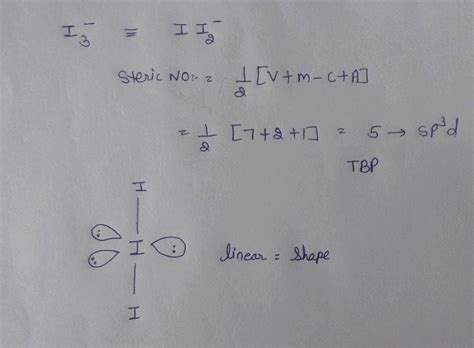 I₃⁻ ≡ I I₂⁻
Steric NO:- = 1/2 [V+M-C+A]
= 1/2 [7+2+1] = 5 → sp³d
TBP
I
I
linear = shape
I